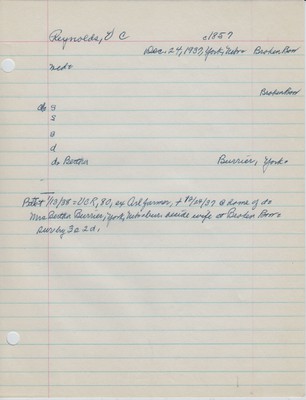 Reynolds, V C c1857
Dec. 24, 1937, York, Nebr Broken Bow
md
Broken Bow
do s
s
s
d
do Bertha Burrier, York
1/13/38 = VCR, 80, ex Arl farmer, + 12/24/37 @ home of do
Mrs Bertha Burrier, York, Nebr bur. beside wife @ Broken Bow =
surv by 3s 2d.